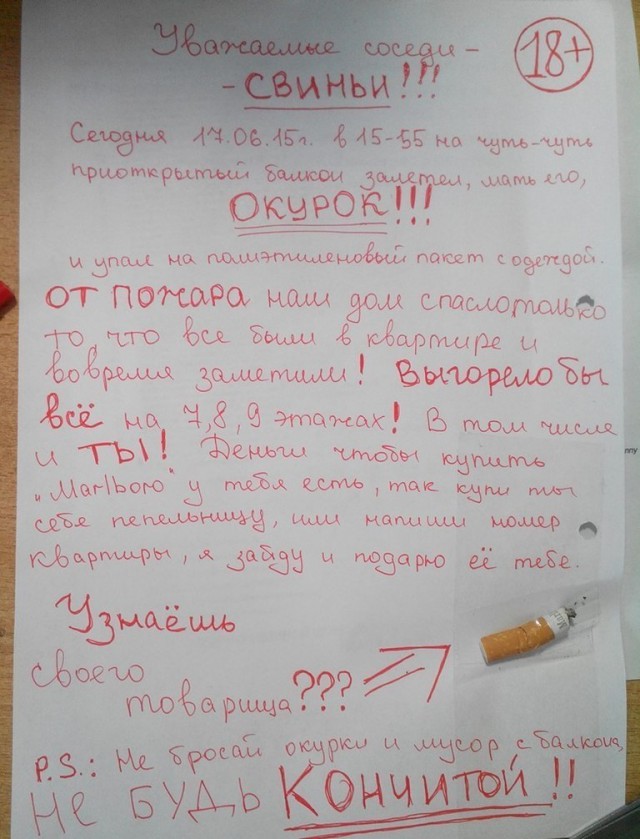 Уважаемые соседи -
18+
- СВИНЬИ!!!
Сегодня 17.06.15г. в 15-55 на чуть-чуть
приоткрытый балкон залетел, мать его,
ОКУРОК!!!
и упал на полиэтиленовый пакет с одеждой.
ОТ ПОЖАРА наш дом спасло только
то, что все были в квартире и
вовремя заметили! ВЫГОРЕЛО БЫ
ВСЁ на 7,8,9 этажах! В том числе
и ТЫ! Деньги чтобы купить
„Marlboro" у тебя есть, так купи ты
себе пепельницу, или напиши номер
квартиры, я зайду и подарю её тебе.
Узнаёшь
своего
товарища???
P.S.: Не бросай окурки и мусор с балкона,
НЕ БУДЬ КОНЧИТОЙ!!